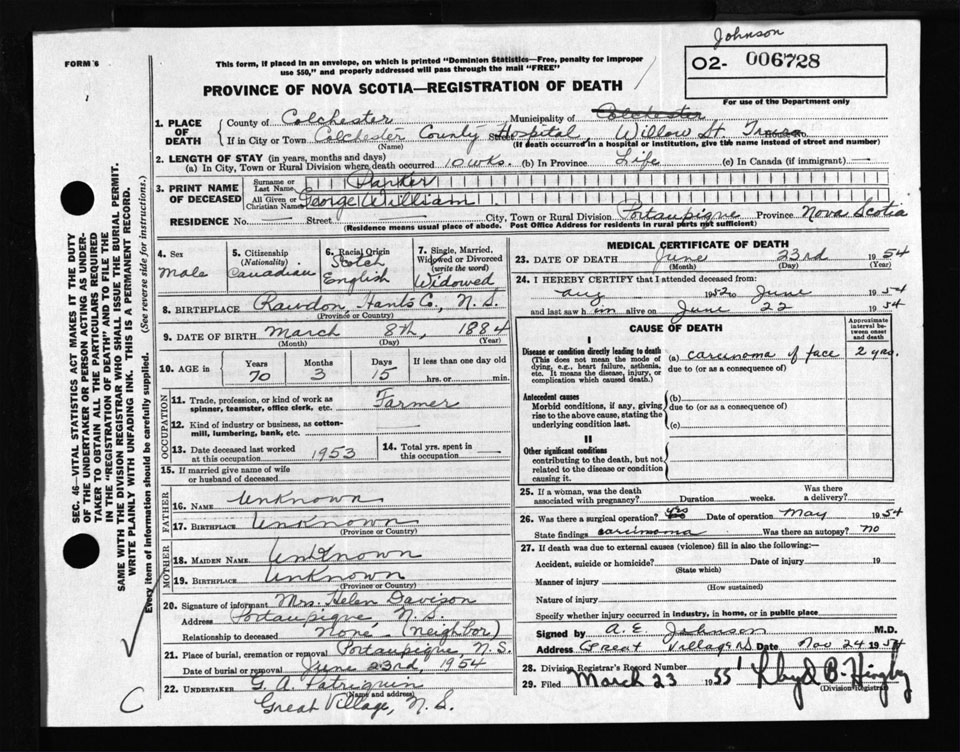 Johnson
FORM 6
This form, if placed in an envelope, on which is printed "Dominion Statistics—Free, penalty for improper
use $50," and properly addressed will pass through the mail "FREE"
O2- 006728
PROVINCE OF NOVA SCOTIA—REGISTRATION OF DEATH
For use of the Department only
1. PLACE OF DEATH
County of Colchester Municipality of Colchester
If in City or Town Colchester County Hospital, Street Willow St. Truro
(Name) (If death occurred in a hospital or institution, give the name instead of street and number)
2. LENGTH OF STAY (in years, months and days)
(a) In City, Town or Rural Division where death occurred 10 wks. (b) In Province Life (c) In Canada (if immigrant) —
3. PRINT NAME OF DECEASED
Surname or Last Name Parker
All Given or Christian Names George William
RESIDENCE No. — Street — City, Town or Rural Division Portaupique Province Nova Scotia
(Residence means usual place of abode. Post Office Address for residents in rural parts not sufficient)
4. Sex
Male
5. Citizenship (Nationality)
Canadian
6. Racial Origin
Scotch
English
7. Single, Married, Widowed or Divorced (write the word)
Widowed
8. BIRTHPLACE Rawdon, Hants Co., N.S.
(Province or Country)
9. DATE OF BIRTH March 8th, 1884
(Month) (Day) (Year)
10. AGE in
Years 70
Months 3
Days 15
If less than one day old
hrs. or min.
OCCUPATION
11. Trade, profession, or kind of work as
spinner, teamster, office clerk, etc. Farmer
12. Kind of industry or business, as cotton-
mill, lumbering, bank, etc.
13. Date deceased last worked
at this occupation 1953
14. Total yrs. spent in
this occupation
15. If married give name of wife
or husband of deceased
FATHER
16. NAME Unknown
17. BIRTHPLACE Unknown
(Province or Country)
MOTHER
18. MAIDEN NAME Unknown
19. BIRTHPLACE Unknown
(Province or Country)
20. Signature of informant Mrs. Helen Davison
Address Portaupique, N.S.
Relationship to deceased None - (neighbor)
21. Place of burial, cremation or removal Portaupique, N.S.
Date of burial or removal June 23rd, 1954
22. UNDERTAKER G. A. Patriquin
(Name and address)
Great Village, N.S.
MEDICAL CERTIFICATE OF DEATH
23. DATE OF DEATH June 23rd 1954
(Month) (Day) (Year)
24. I HEREBY CERTIFY that I attended deceased from:
Aug 1952 to June 1954
and last saw him alive on June 22 1954
CAUSE OF DEATH
Approximate interval between onset and death
I
Disease or condition directly leading to death
(This does not mean the mode of
dying, e.g., heart failure, asthenia,
etc. It means the disease, injury, or
complication which caused death.)
(a) carcinoma of face 2 yrs.
due to (or as a consequence of)
Antecedent causes
Morbid conditions, if any, giving
rise to the above cause, stating the
underlying condition last.
(b)
due to (or as a consequence of)
(c)
II
Other significant conditions
contributing to the death, but not
related to the disease or condition
causing it.
25. If a woman, was the death
associated with pregnancy? Duration weeks. Was there a delivery?
26. Was there a surgical operation? yes Date of operation May 1954
State findings carcinoma Was there an autopsy? No
27. If death was due to external causes (violence) fill in also the following:—
Accident, suicide or homicide? Date of injury 19
(State which)
Manner of injury
(How sustained)
Nature of injury
Specify whether injury occurred in industry, in home, or in public place
Signed by A. E. Johnson M.D.
Address Great Village NS Date Nov 24 1954
28. Division Registrar's Record Number
29. Filed March 23 1955 Lloyd B.
(Division Registrar)
SEC. 46—VITAL STATISTICS ACT MAKES IT THE DUTY
OF THE UNDERTAKER OR PERSON ACTING AS UNDER-
TAKER TO OBTAIN ALL THE PARTICULARS REQUIRED
IN THE "REGISTRATION OF DEATH" AND TO FILE THE
SAME WITH THE DIVISION REGISTRAR WHO SHALL ISSUE THE BURIAL PERMIT.
WRITE PLAINLY WITH UNFADING INK. THIS IS A PERMANENT RECORD.
Every item of information should be carefully supplied. (See reverse side for instructions.)
C